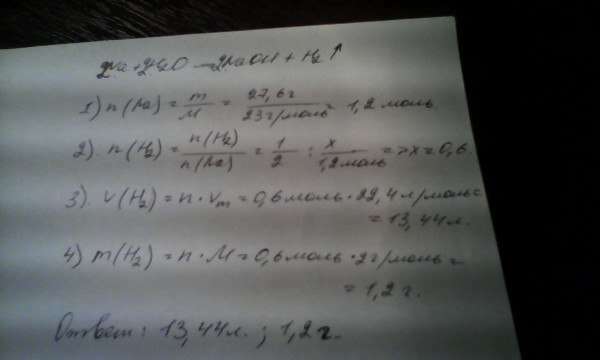 2Na + 2H2O → 2NaOH + H2↑
1) n(Na) = m/M = 27,6г/23г/моль = 1,2 моль
2). n(H2) = n(H2)/n(Na) = 1/2 : x/1,2моль => x = 0,6.
3). V(H2) = n · Vm = 0,6моль · 22,4 л/моль =
= 13,44л.
4) m(H2) = n · M = 0,6моль · 2г/моль =
= 1,2 г.
Ответ: 13,44л. ; 1,2г.